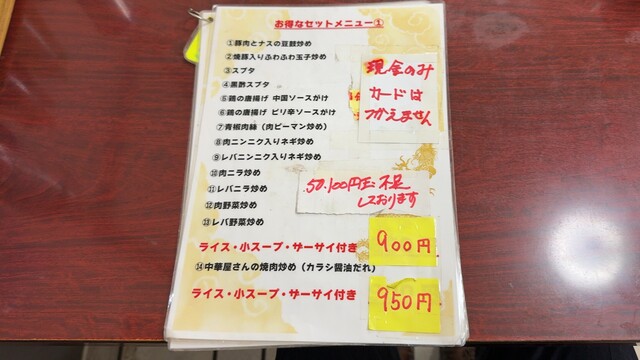 お得なセットメニュー①
①豚肉とナスの豆鼓炒め
②焼豚入りふわふわ玉子炒め
③スブタ
④黒酢スブタ
⑤鶏の唐揚げ 中国ソースがけ
⑥鶏の唐揚げ ピリ辛ソースがけ
⑦青椒肉絲（肉ピーマン炒め）
⑧肉ニンニク入りネギ炒め
⑨レバニンニク入りネギ炒め
⑩肉ニラ炒め
⑪レバニラ炒め
⑫肉野菜炒め
⑬レバ野菜炒め
ライス・小スープ・ザーサイ付き
900円
⑭中華屋さんの焼肉炒め（カラシ醤油だれ）
ライス・小スープ・ザーサイ付き
950円
現金のみ
カードは
つかえません
50.100円玉 不足
しております